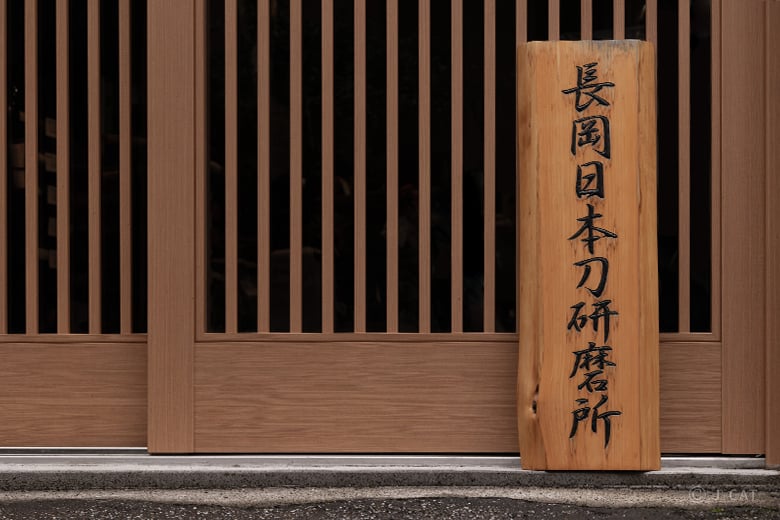 長岡日本刀研磨所
© J-CAT